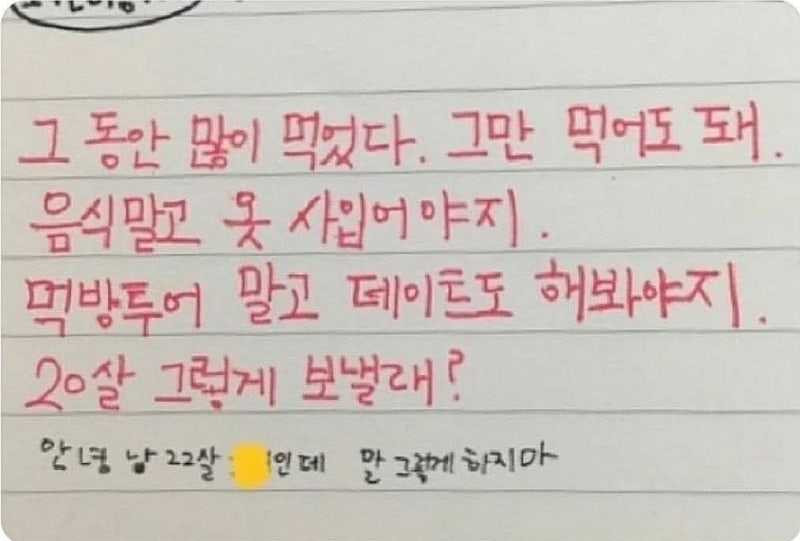 그 동안 많이 먹었다. 그만 먹어도 돼.
음식말고 옷 사입어야지.
먹방투어 말고 데이트도 해봐야지.
20살 그렇게 보낼래?
안녕 난 22살 인데 말 그렇게 하지마